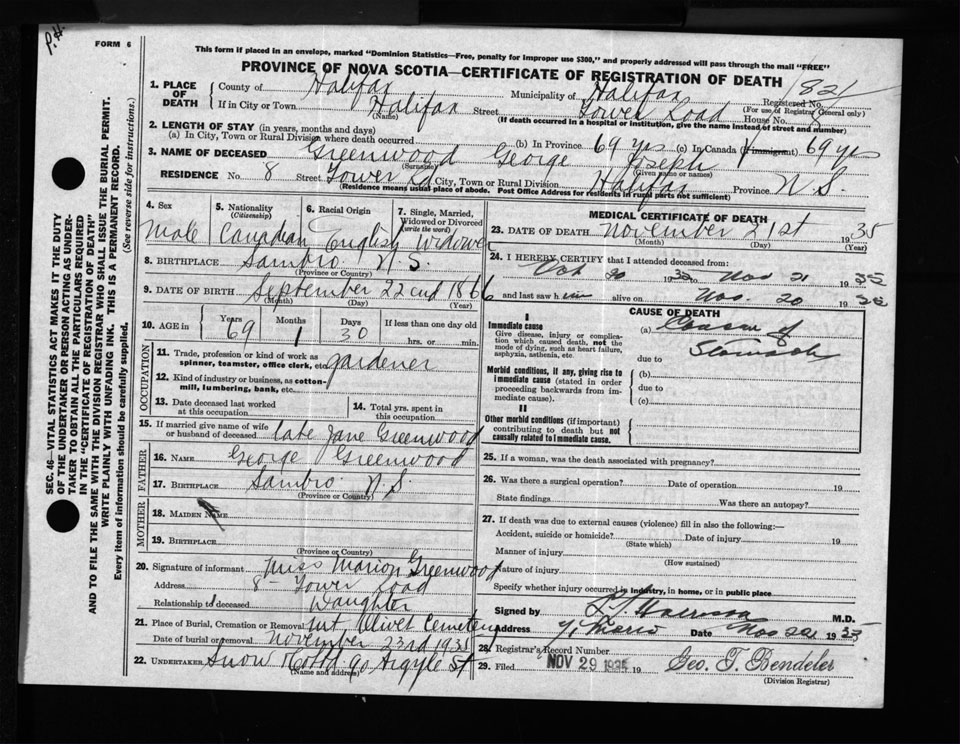 P.H.
FORM 6
This form if placed in an envelope, marked "Dominion Statistics—Free, penalty for improper use $300," and properly addressed will pass through the mail "FREE"
PROVINCE OF NOVA SCOTIA—CERTIFICATE OF REGISTRATION OF DEATH
1821
1. PLACE OF DEATH County of Halifax Municipality of Halifax Registered No.
(For use of Registrar General only)
If in City or Town Halifax Street Tower Road House No. 8
(Name) (If death occurred in a hospital or institution, give the name instead of street and number)
2. LENGTH OF STAY (in years, months and days)
(a) In City, Town or Rural Division where death occurred (b) In Province 69 yrs (c) In Canada (if immigrant) 69 yrs
3. NAME OF DECEASED Greenwood George Joseph
(Surname) (Given name or names)
RESIDENCE No. 8 Street Tower Rd City, Town or Rural Division Halifax Province N.S.
(Residence means usual place of abode. Post Office Address for residents in rural parts not sufficient)
4. Sex 5. Nationality (Citizenship) 6. Racial Origin 7. Single, Married, Widowed or Divorced (write the word)
Male Canadian English Widower
8. BIRTHPLACE Sambro N.S.
(Province or Country)
9. DATE OF BIRTH September 22nd 1866
(Month) (Day) (Year)
10. AGE in Years 69 Months 1 Days 30 If less than one day old hrs. or min.
OCCUPATION
11. Trade, profession or kind of work as spinner, teamster, office clerk, etc. gardener
12. Kind of industry or business, as cotton-mill, lumbering, bank, etc.
13. Date deceased last worked at this occupation 14. Total yrs. spent in this occupation
15. If married give name of wife or husband of deceased late Jane Greenwood
FATHER
16. NAME George Greenwood
17. BIRTHPLACE Sambro N.S.
(Province or Country)
MOTHER
18. MAIDEN NAME
19. BIRTHPLACE
(Province or Country)
20. Signature of informant Miss Marion Greenwood
Address 8 Tower Road
Relationship to deceased Daughter
21. Place of Burial, Cremation or Removal Mt. Olivet Cemetery
Date of burial or removal November 23rd 1935
22. UNDERTAKER Snow & Co Ltd 90 Argyle St
(Name and address)
MEDICAL CERTIFICATE OF DEATH
23. DATE OF DEATH November 21st 1935
(Month) (Day) (Year)
24. I HEREBY CERTIFY that I attended deceased from:
Oct 20 1935 Nov 21 1935
and last saw him alive on Nov. 20 1935
CAUSE OF DEATH
I
Immediate cause
Give disease, injury or complication which caused death, not the mode of dying, such as heart failure, asphyxia, asthenia, etc.
(a) Cancer of Stomach
due to
Morbid conditions, if any, giving rise to immediate cause (stated in order proceeding backwards from immediate cause).
(b)
due to
(c)
II
Other morbid conditions (if important) contributing to death but not causally related to immediate cause.
25. If a woman, was the death associated with pregnancy?
26. Was there a surgical operation? Date of operation 19
State findings Was there an autopsy?
27. If death was due to external causes (violence) fill in also the following:—
Accident, suicide or homicide? Date of injury 19
(State which)
Manner of injury
(How sustained)
Nature of injury
Specify whether injury occurred in industry, in home, or in public place
Signed by M.D.
Address Date Nov 22 1935
28. Registrar's Record Number
29. Filed NOV 29 1935 19 Geo. T. Bendeler
(Division Registrar)
SEC. 46—VITAL STATISTICS ACT MAKES IT THE DUTY
OF THE UNDERTAKER OR PERSON ACTING AS UNDER-
TAKER TO OBTAIN ALL THE PARTICULARS REQUIRED
IN THE "CERTIFICATE OF REGISTRATION OF DEATH"
AND TO FILE THE SAME WITH THE DIVISION REGISTRAR WHO SHALL ISSUE THE BURIAL PERMIT.
WRITE PLAINLY WITH UNFADING INK. THIS IS A PERMANENT RECORD.
Every item of information should be carefully supplied. (See reverse side for instructions.)